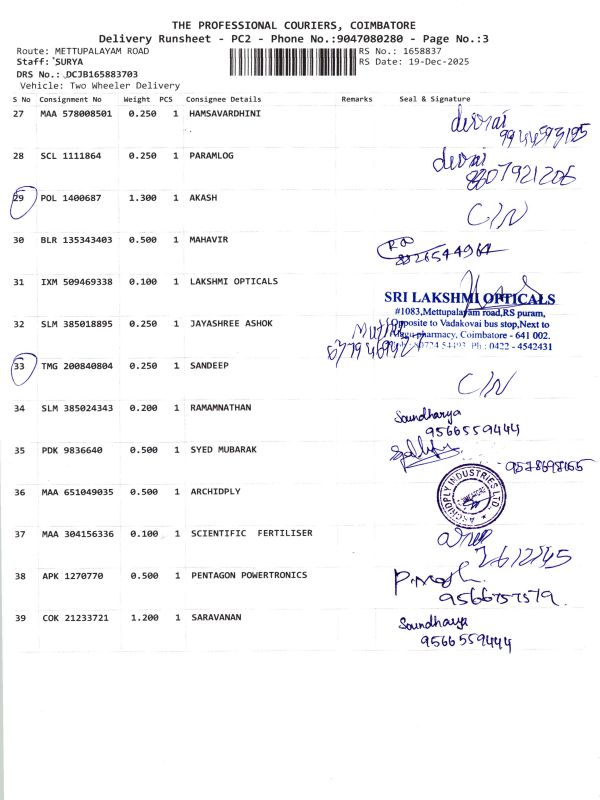 THE PROFESSIONAL COURIERS, COIMBATORE
Delivery Runsheet - PC2 - Phone No.:9047080280 - Page No.:3
Route: METTUPALAYAM ROAD RS No.: 1658837
Staff: SURYA RS Date: 19-Dec-2025
DRS No.: DCJB165883703
Vehicle: Two Wheeler Delivery
S No Consignment No Weight PCS Consignee Details Remarks Seal & Signature
27 MAA 578008501 0.250 1 HAMSAVARDHINI devrai
28 SCL 1111864 0.250 1 PARAMLOG devrai
8807921206
29 POL 1400687 1.300 1 AKASH C/N
30 BLR 135343403 0.500 1 MAHAVIR
31 IXM 509469338 0.100 1 LAKSHMI OPTICALS
SRI LAKSHMI OPTICALS
#1083,Mettupalayam road,RS puram,
Opposite to Vadakovai bus stop,Next to
pharmacy, Coimbatore - 641 002.
Ph : 0422 - 4542431
32 SLM 385018895 0.250 1 JAYASHREE ASHOK
33 TMG 200840804 0.250 1 SANDEEP C/N
34 SLM 385024343 0.200 1 RAMAMNATHAN Soundharya
9566559444
35 PDK 9836640 0.500 1 SYED MUBARAK
36 MAA 651049035 0.500 1 ARCHIDPLY
ARCHIDPLY INDUSTRIES LTD.
37 MAA 304156336 0.100 1 SCIENTIFIC FERTILISER
38 APK 1270770 0.500 1 PENTAGON POWERTRONICS
9566757579
39 COK 21233721 1.200 1 SARAVANAN Soundharya
9566559444